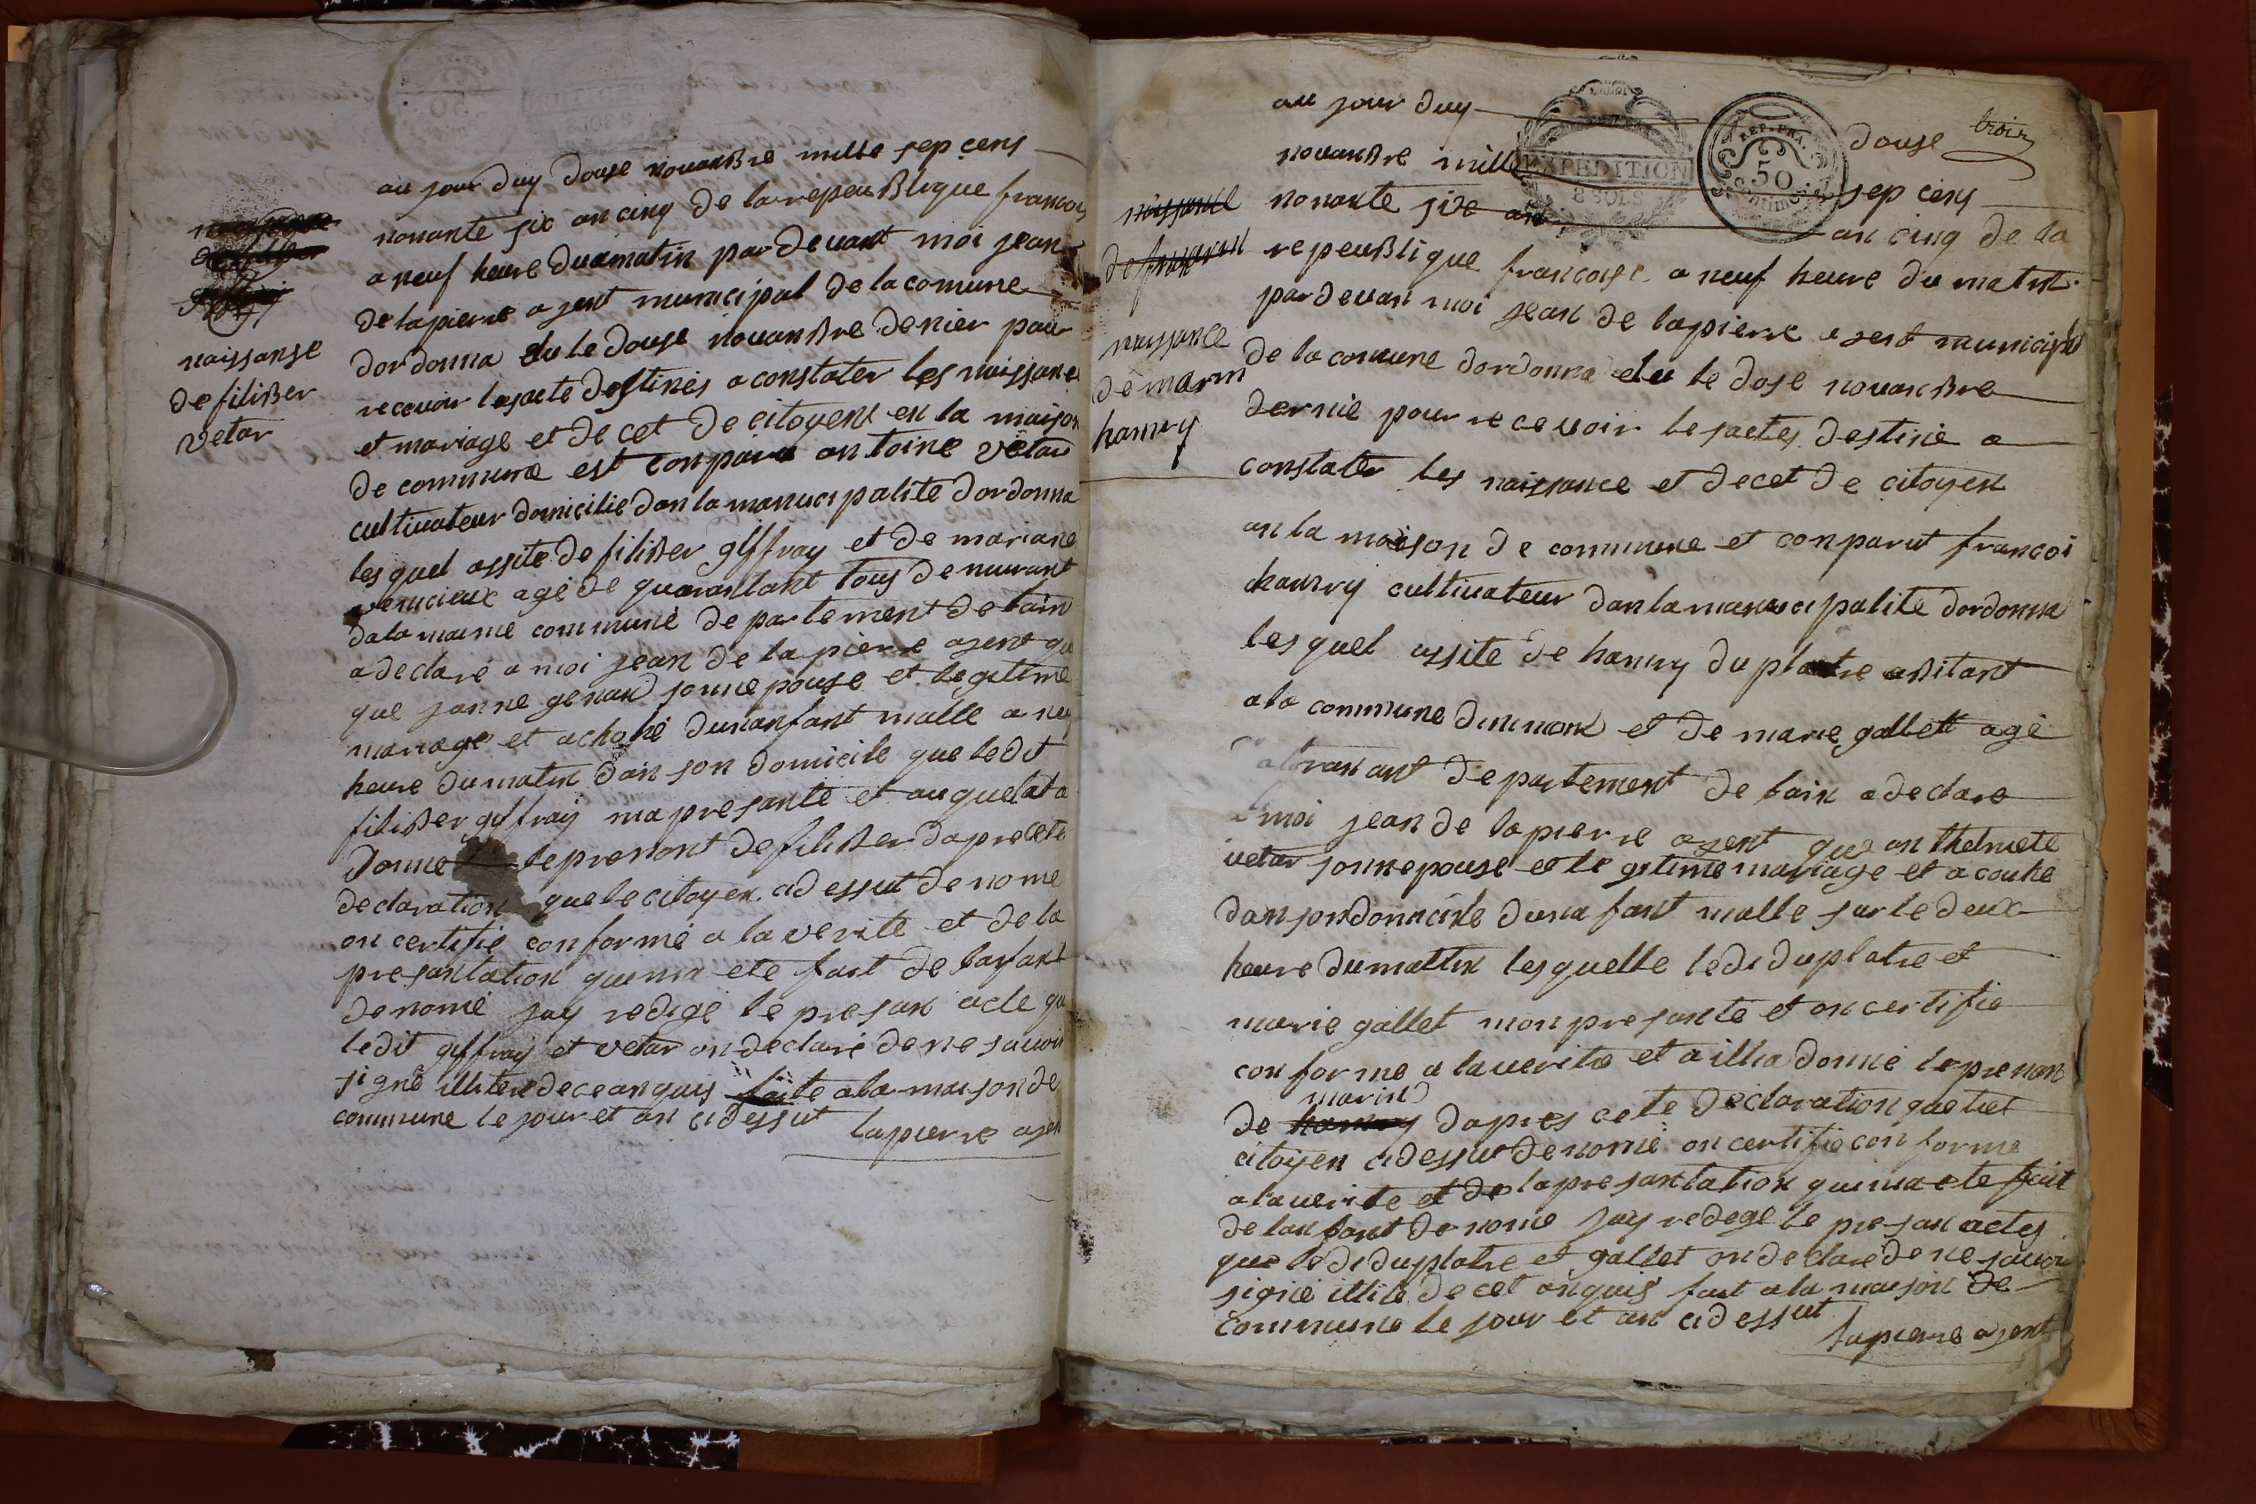 au jour duy douse novanbre mille sep cens
novante six an cinq de larepeublique francois
a neuf heure dumatin par devant moi jean
de lapierre agent municipal de la comune
dordonna elu le douse novanbre denier pour
recevoir lesacte destinés a constater les naissance
et mariage et de cet de citoyens en la maison
de commune est conparu antoine vetar
cultivateur domicilie dan la manucipalite dordonna
les quel assite de filiber giffray et de mariane
vernicieux agé de quarantant tous demeurant
dala maime commune departement de lain
a declaré a moi jean de lapierre agent que
que janne genand sonnepouse et legitime
mariage et achohé dunanfant malle a neuf
heure du matin dan son domicile que ledit
filiber giffray ma presanté et auquel at a
donne le prenont de filiber dapre cete
declaration que le citoyen cidessut denome
on certifie conforme a la verite et de la
presantation quimn ete fait de lanfant
denomé jay redigé le presan acte que
ledit giffray et vetar on declaré dene savoir
signé illitere deceanquis faite ala maison de
commune le jour et an cidessut
lapierre agen
naissanse
de filiber
vetar
au jour duy douse trois
novanbre mille sep cens
novante sixe an an cinq de la
repeublique francoise a neuf heure du matin
pardevan moi jean de lapierre agent municipal
de la comune dordonna elu le dose novanbre
dernié pour recevoir lesactes destiné a
constater les naissance et decet de citoyen
an la maison de commune et conparut francoi
hanry cultivateur dan la manucipalite dordonna
les quel assité de hanry duplatre abitant
ala commune dinimont et de marie gallett agé
transant departement de lain a declare
a moi jean de lapierre agent que anthelmete
vetar sonnepouse et le gitime mariage et acouhe
dansondomicile duna fant malle sur le deux
heure dumattin lesquelle ledi duplatre et
marie gallet mon presante et on certifie
conforme a laverite et a illia donné leprenon
de hanry marin dapres cete declaration que let
citoyen cidessu denomé on certifie conforme
alaverite et de lapresantation quima ete fait
de lanfant denome jay redegé le presan actes
que ledi duplatre et gallet on declare de ne savoir
signié illite de cet anquis fait a la maison de
commune le jour et an cidessut
lapierre agent
naissance
de francoi
naissance
de marin
hanry
EXPEDITION
8 SOLS
REP. FRA.
50
Centimes